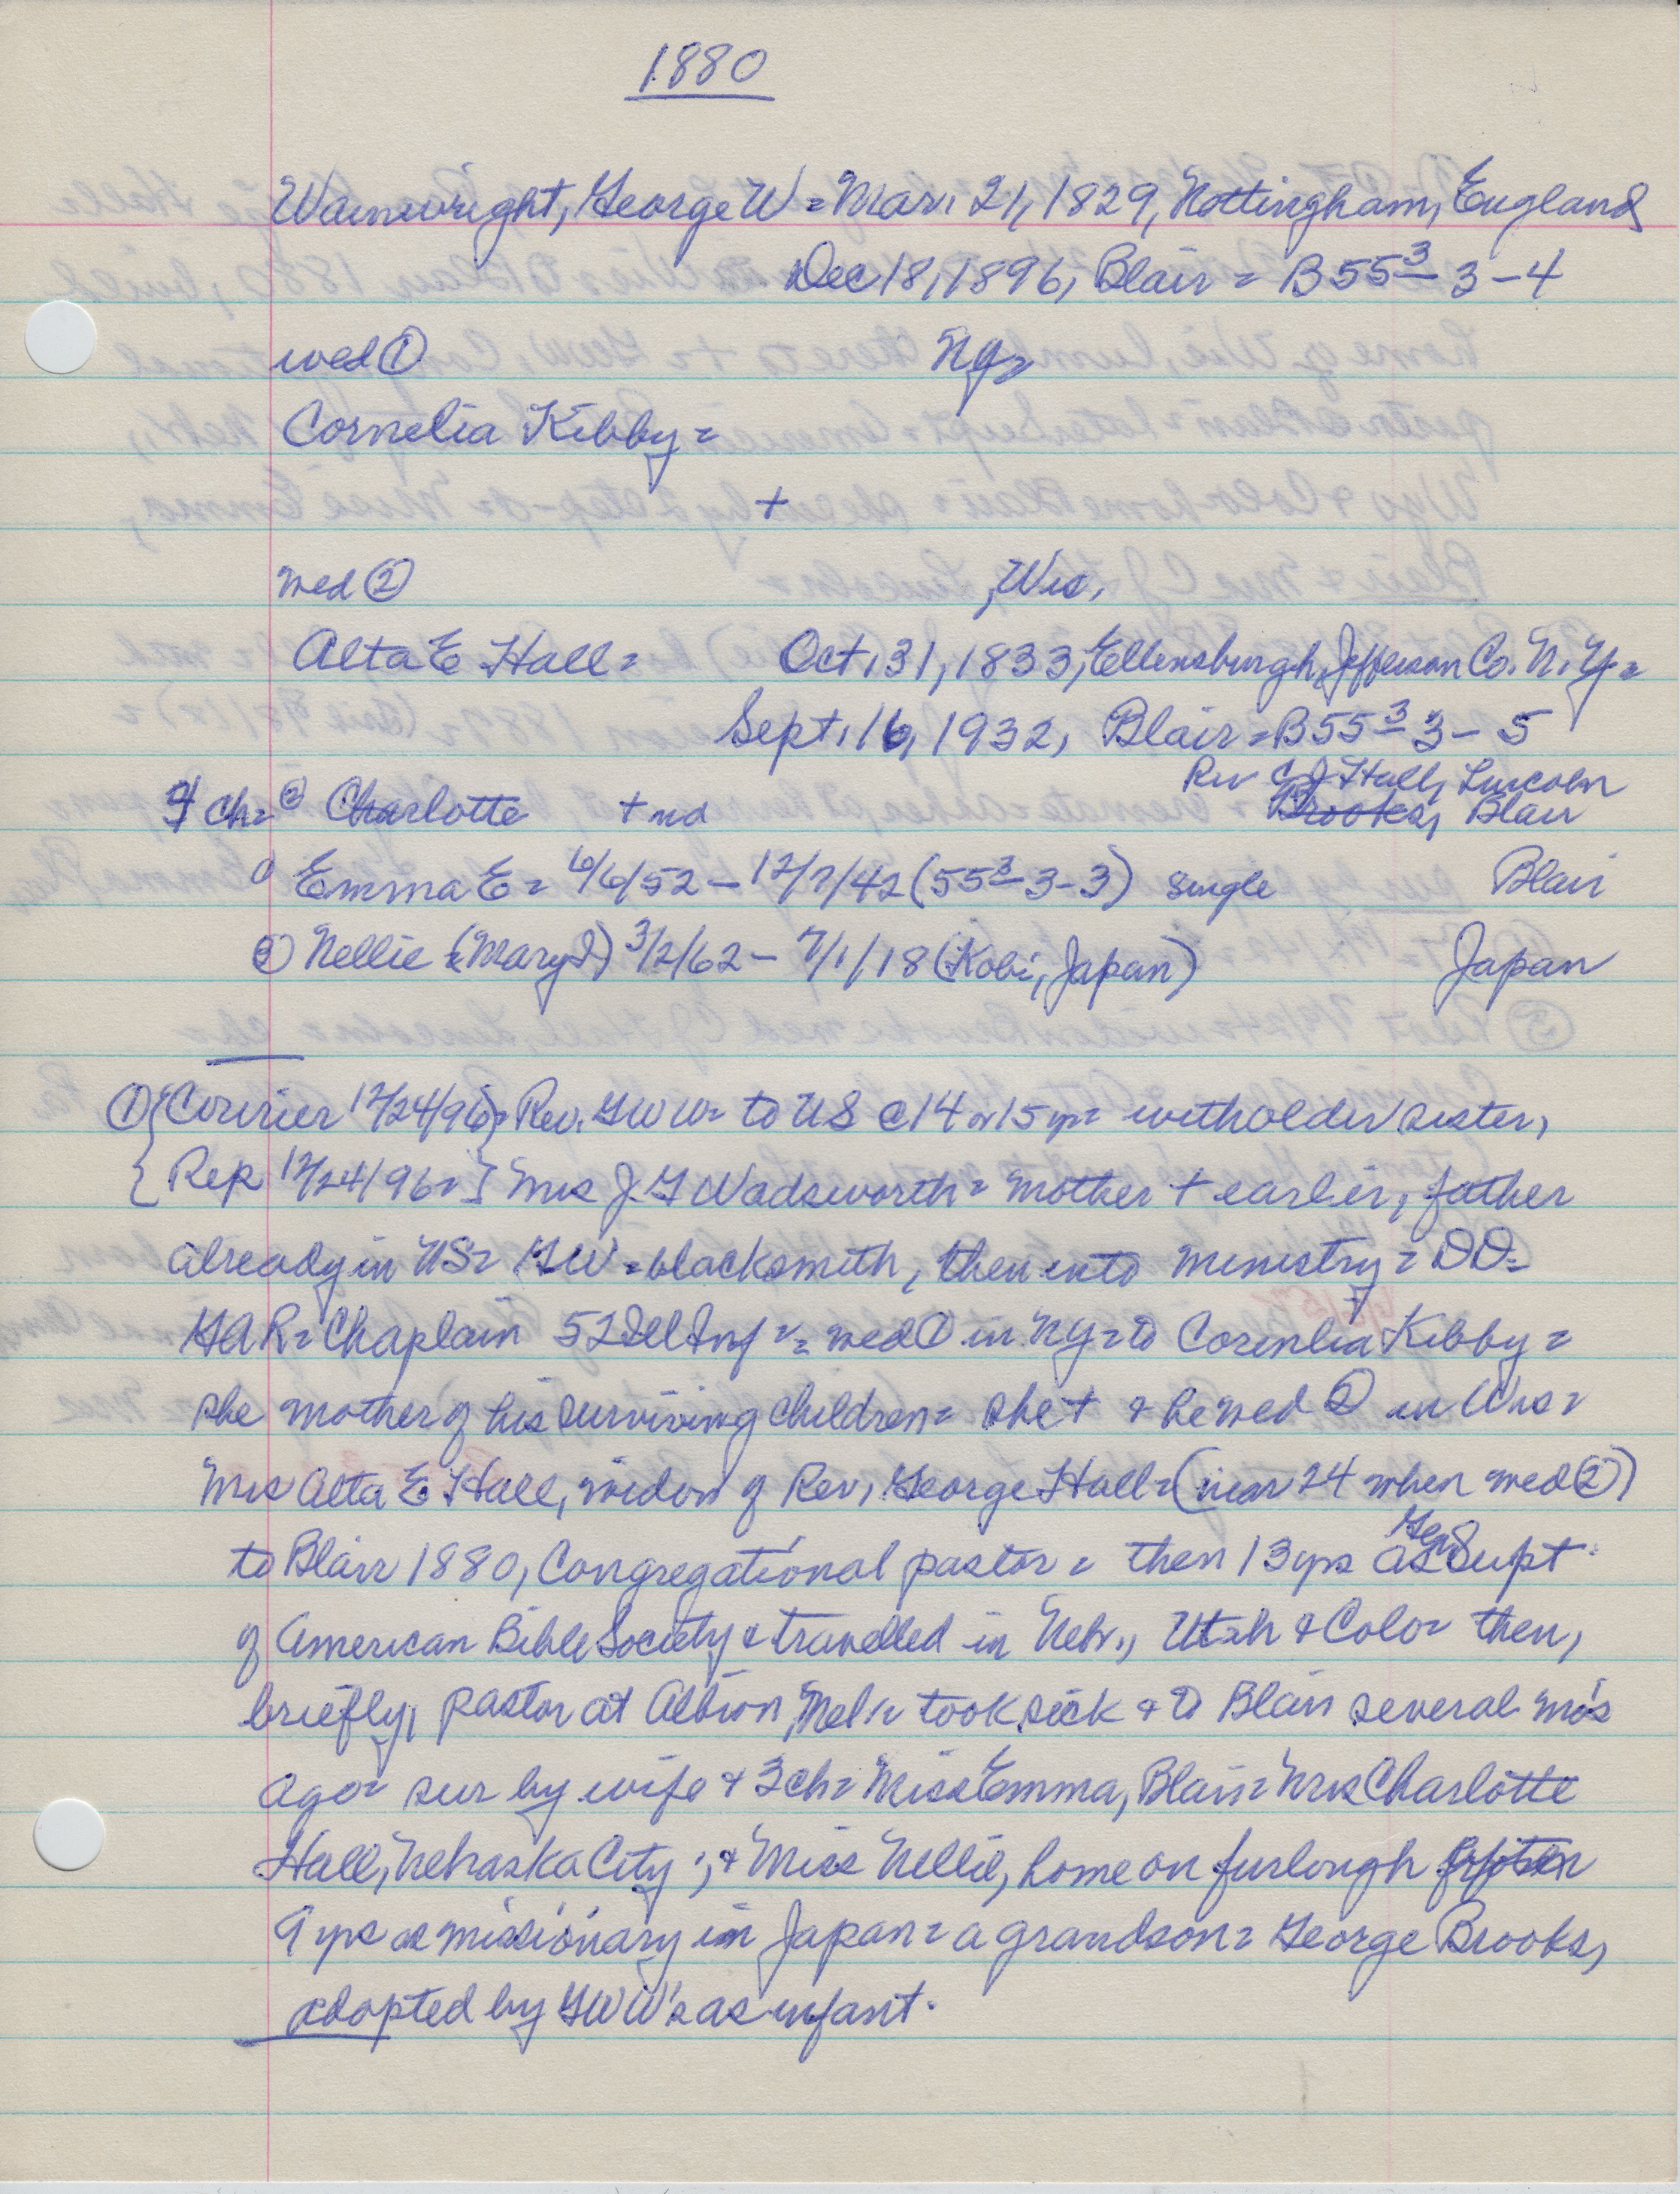 1880
Wainwright, George W = Mar. 21, 1829, Nottingham, England
Dec 18, 1896, Blair = B 55 3 3-4
wed ① NY=
Cornelia Kibby =
+
wed ② , Wis,
Alta E Hall = Oct. 31, 1833, Ellensburgh, Jefferson Co. N.Y. =
Sept. 16, 1932, Blair = B 55 3 3-5
Rev CJ Hall, Lincoln
ch = ② Charlotte + nd Brooks, Blair
① Emma E = 6/6/52 - 12/7/42 (55 3 3-3) single Blair
③ Nellie (Mary) 3/2/62 - 7/1/18 (Kobi, Japan) Japan
① {Courier 12/24/96} = Rev. GWW = to US @ 14 or 15 yr = with older sister,
{Rep 12/24/96 =} Mrs J. G Wadsworth = mother + earlier, father
already in US = GW = blacksmith, then into ministry = DD =
GAR = Chaplain 52 Ill Inf = wed ① in NY = to Corenlia Kibby =
she mother of his surviving children = she + & he wed ② in Wis =
Mrs Alta E Hall, widow of Rev. George Hall = (near 24 when wed ②)
to Blair 1880, Congregational pastor = then 13 yrs as Gen Supt
of American Bible Society & travelled in Nebr., Utah & Colo = then,
briefly, pastor at Albion, Neb = took sick & to Blair several mo's
ago = sur by wife & 3 ch = Miss Emma, Blair = Mrs Charlotte
Hall, Nebraska City; & Miss Nellie, home on furlough
9 yrs as missionary in Japan = a grandson = George Brooks,
adopted by GWW's as infant.